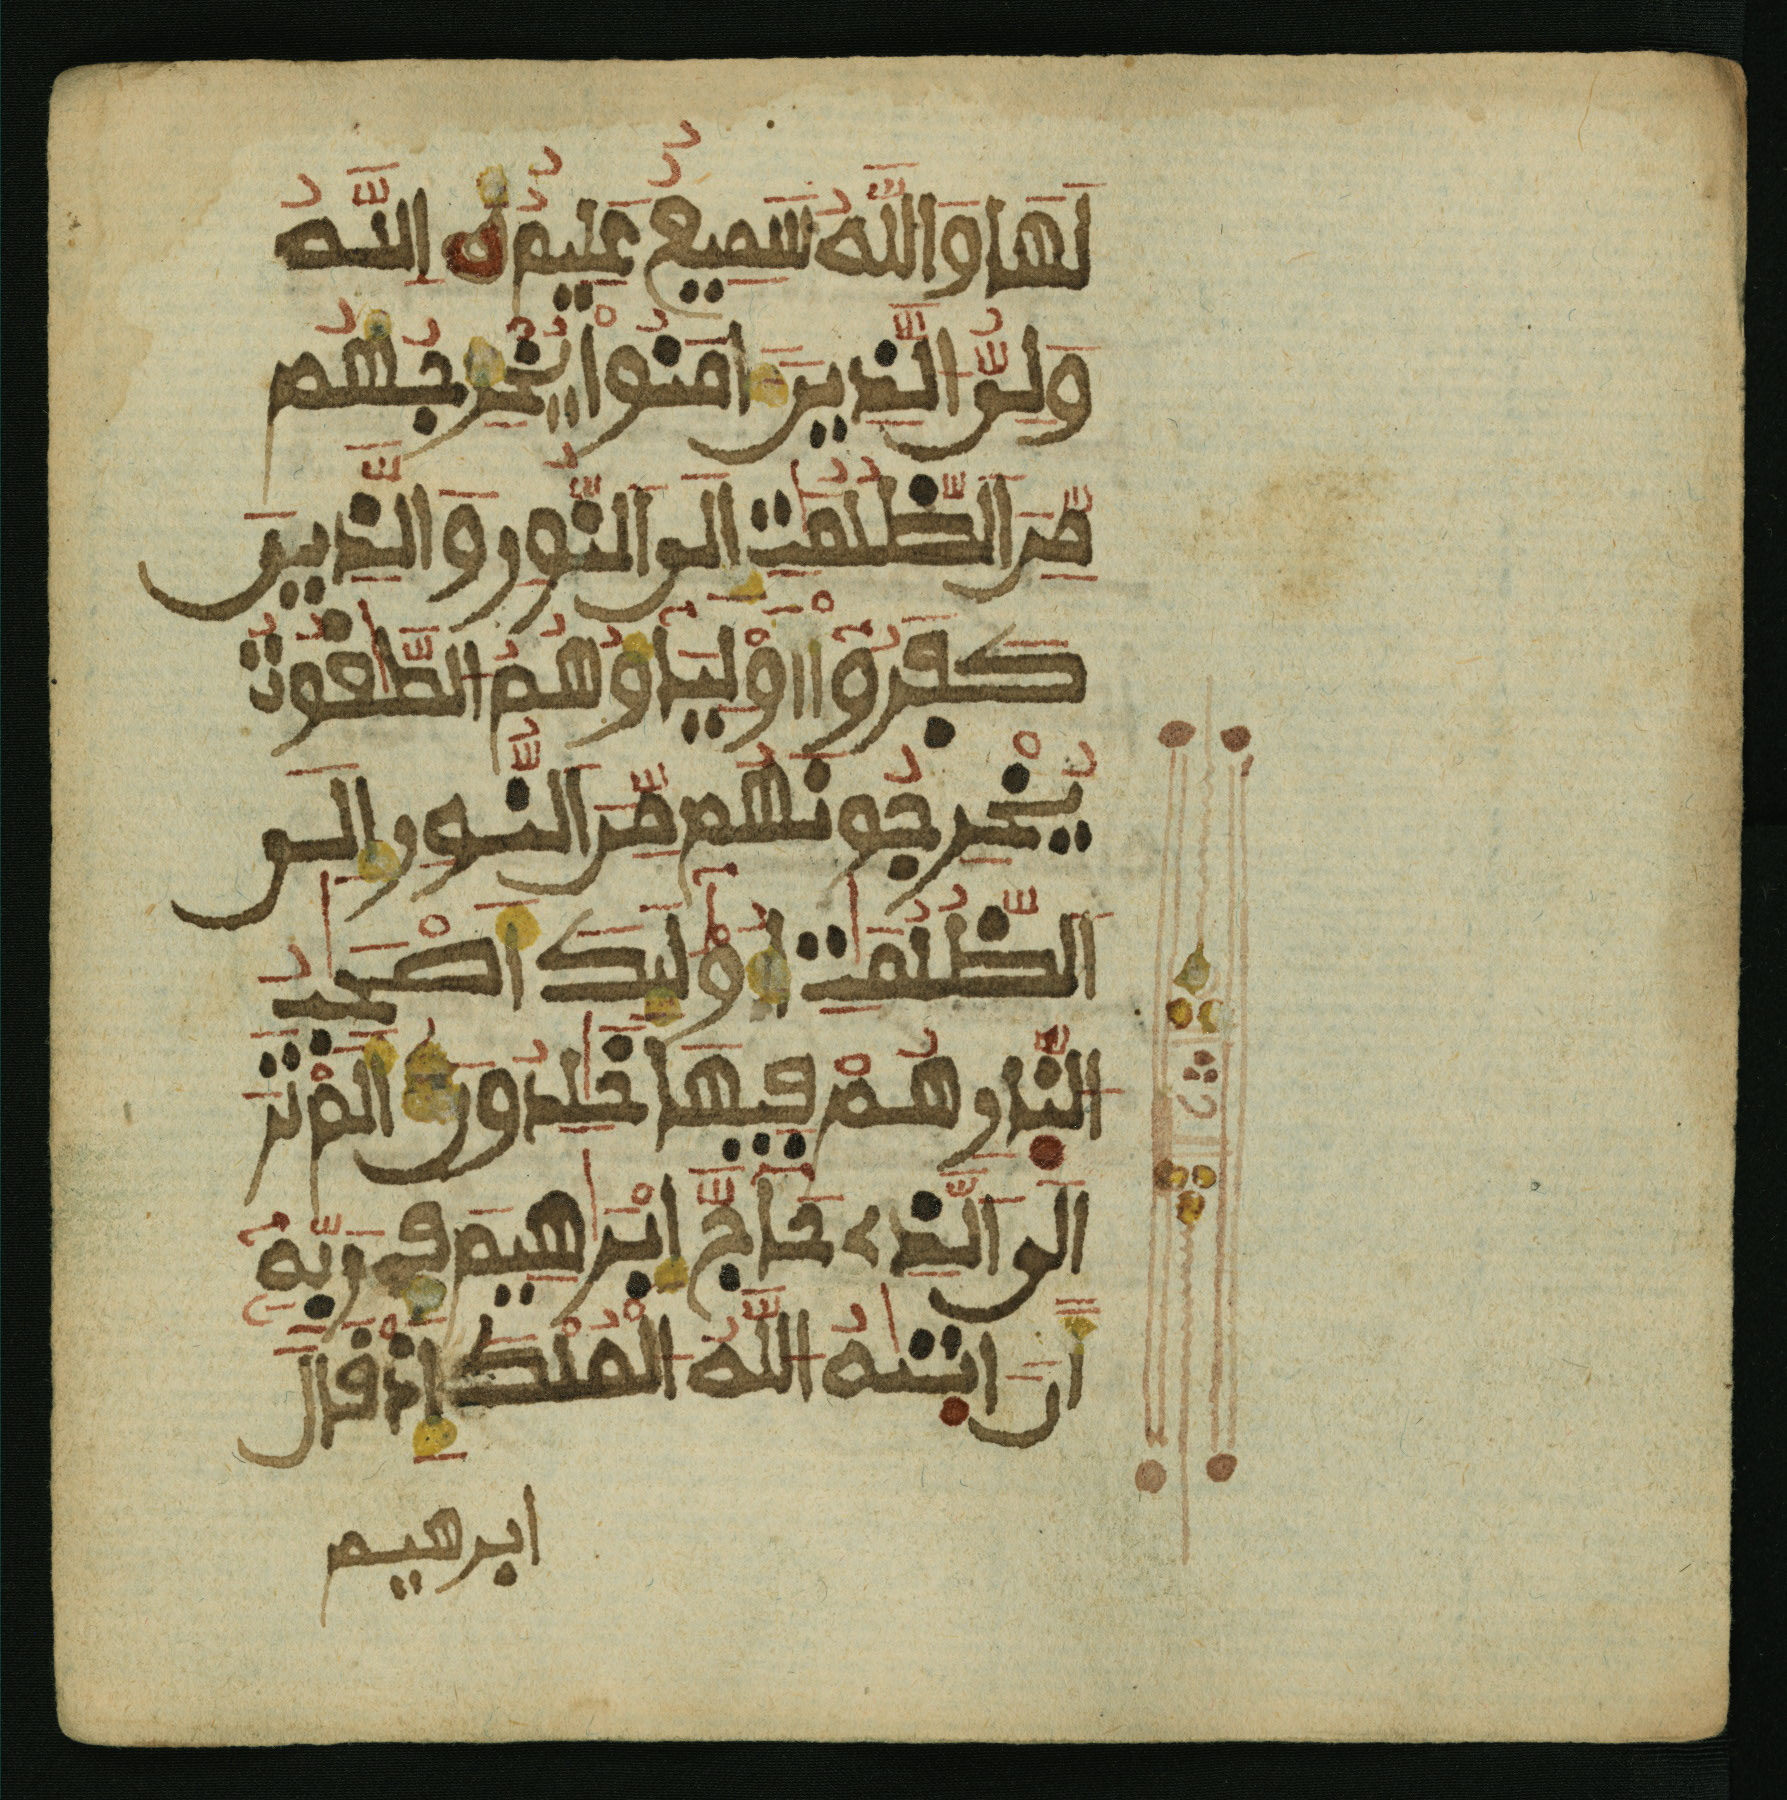 لَهَا وَاللَّهُ سَمِيعٌ عَلِيمٌ اللَّهُ
وَلِيُّ الَّذِينَ ءَامَنُواْ يُخْرِجُهُم
مِّنَ الظُّلُمَٰتِ إِلَى النُّورِ وَالَّذِينَ
كَفَرُواْ أَوْلِيَاؤُهُمُ الطَّٰغُوتُ
يُخْرِجُونَهُم مِّنَ النُّورِ إِلَى
الظُّلُمَٰتِ أُوْلَٰئِكَ أَصْحَٰبُ
النَّارِ هُمْ فِيهَا خَٰلِدُونَ أَلَمْ تَرَ
إِلَى الَّذِي حَاجَّ إِبْرَٰهِيمَ فِي رَبِّهِ
أَنْ ءَاتَىٰهُ اللَّهُ الْمُلْكَ إِذْ قَالَ
ابرهيم